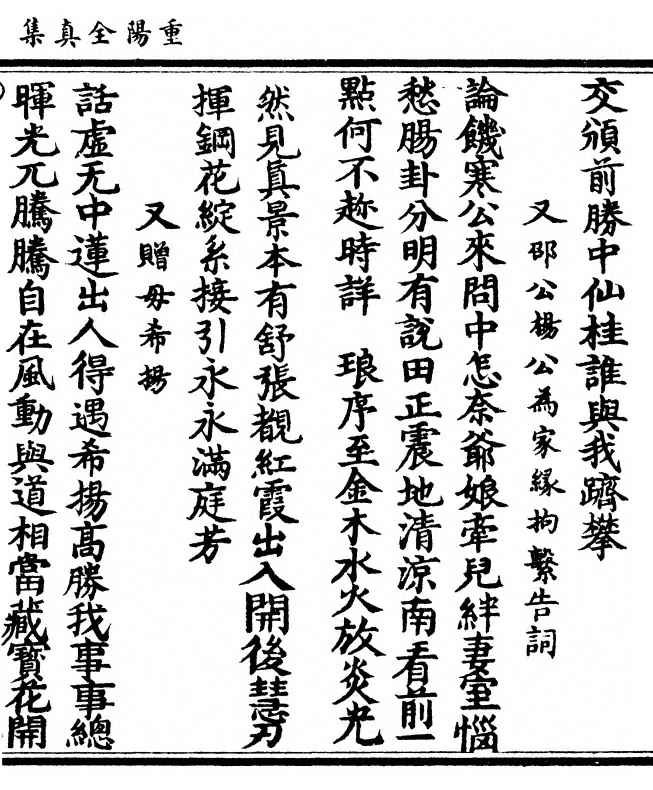 重陽全真集
交頒前勝中仙桂誰與我躋攀
又邵公楊公為家緣拘繫告詞
論饑寒公來問中怎奈爺娘牽兒絆妻室惱
愁腸卦分明有說田正震地清涼南看前一
點何不趂時詳　琅序至金木水火放炎光
然見眞景本有舒張覩紅霞出入開後慧刃
揮鋼花綻系接引永永滿庭芳
又贈毋希揚
話虛无中蓮出人得遇希揚高勝我事事總
暉光兀騰騰自在風動與道相當藏寳花開